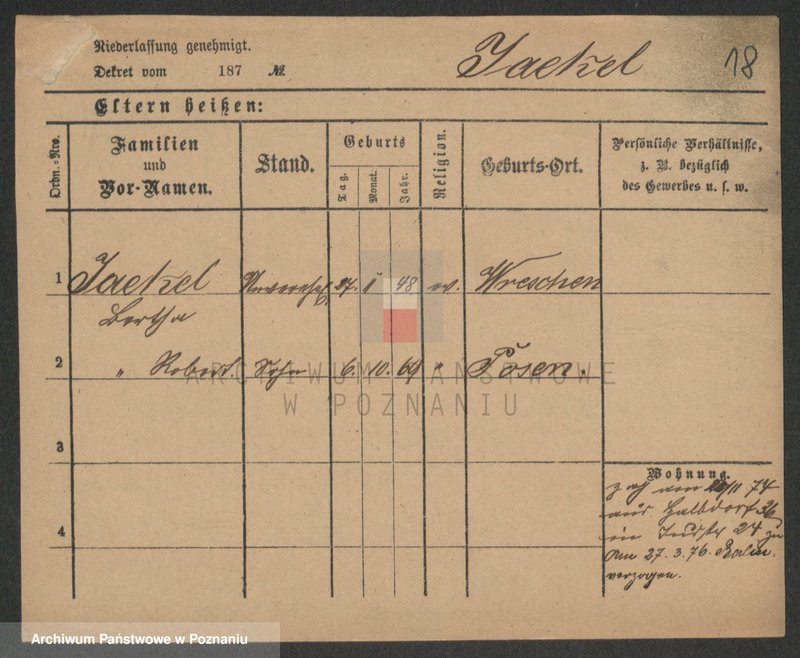 Niederlassung genehmigt.
Dekret vom 187 №
Jaekel
18
Eltern heißen:
Ordn.=Nro.
Familien
und
Vor-Namen.
Stand.
Geburts
Tag.
Monat.
Jahr.
Religion.
Geburts-Ort.
Persönliche Verhältnisse,
z. B. bezüglich
des Gewerbes u. s. w.
1 Jaekel 27. 48 ev. Wreschen
Bertha
2 " Robert. Sohn 6. 10. 69 " Posen.
3
4
Wohnung.
zog am /11 74
aus Halbdorf 36
in 24 zu
Am 27. 3. 76. Berlin.
verzogen.
ARCHIWUM PAŃSTWOWE
W POZNANIU
Archiwum Państwowe w Poznaniu